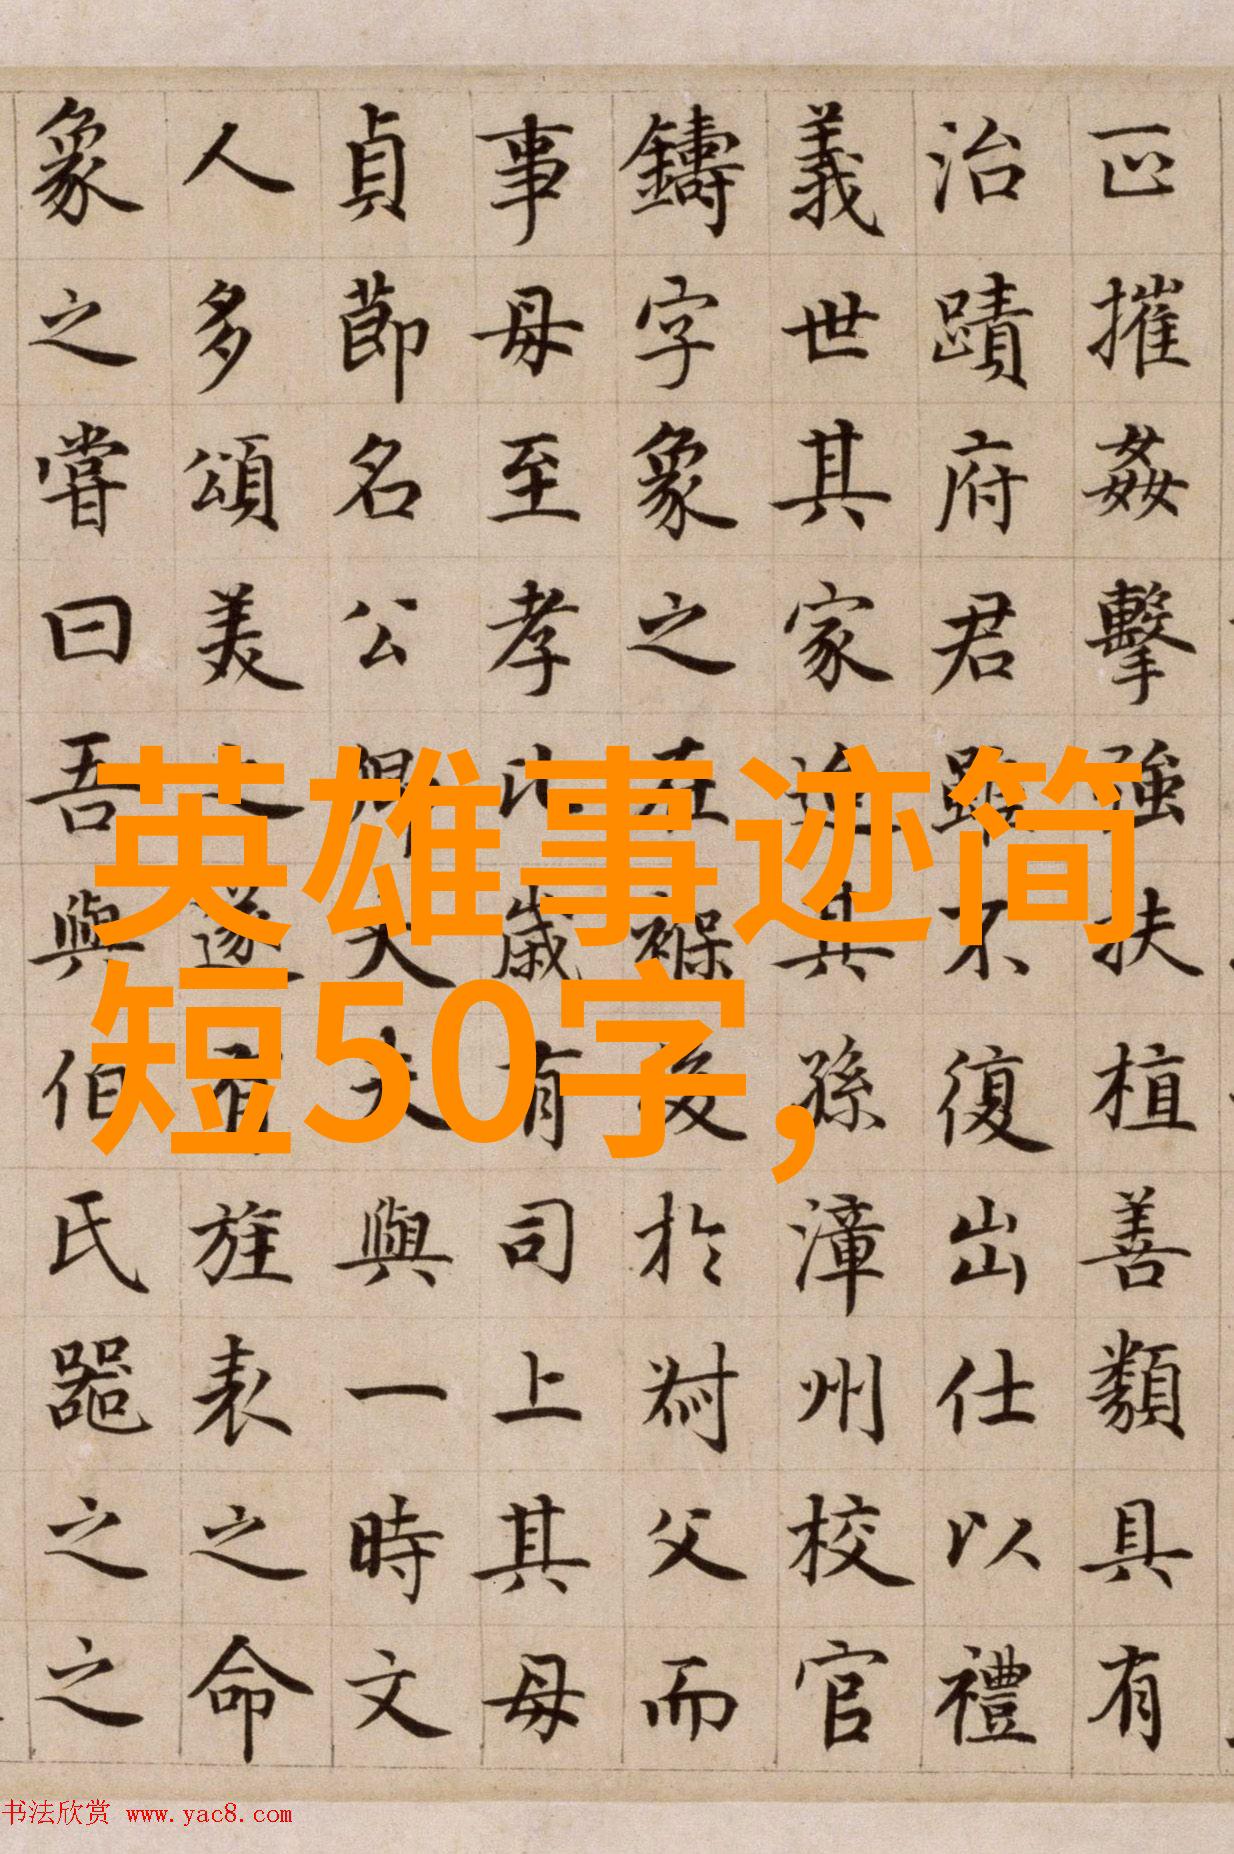 摧姦擊強扶植善類具有
治蹟府君雖不復出仕以禮
義世其家其孫漳州校官
鑄字象之在褓於父而
事母至孝比歲有司上其母
貞節名公卿大夫與一時文
人多頌美之遂有旌表之命
象之嘗曰吾與伯氏器之之
英雄事迹简
短50字,
书法欣赏 www.yac8.com